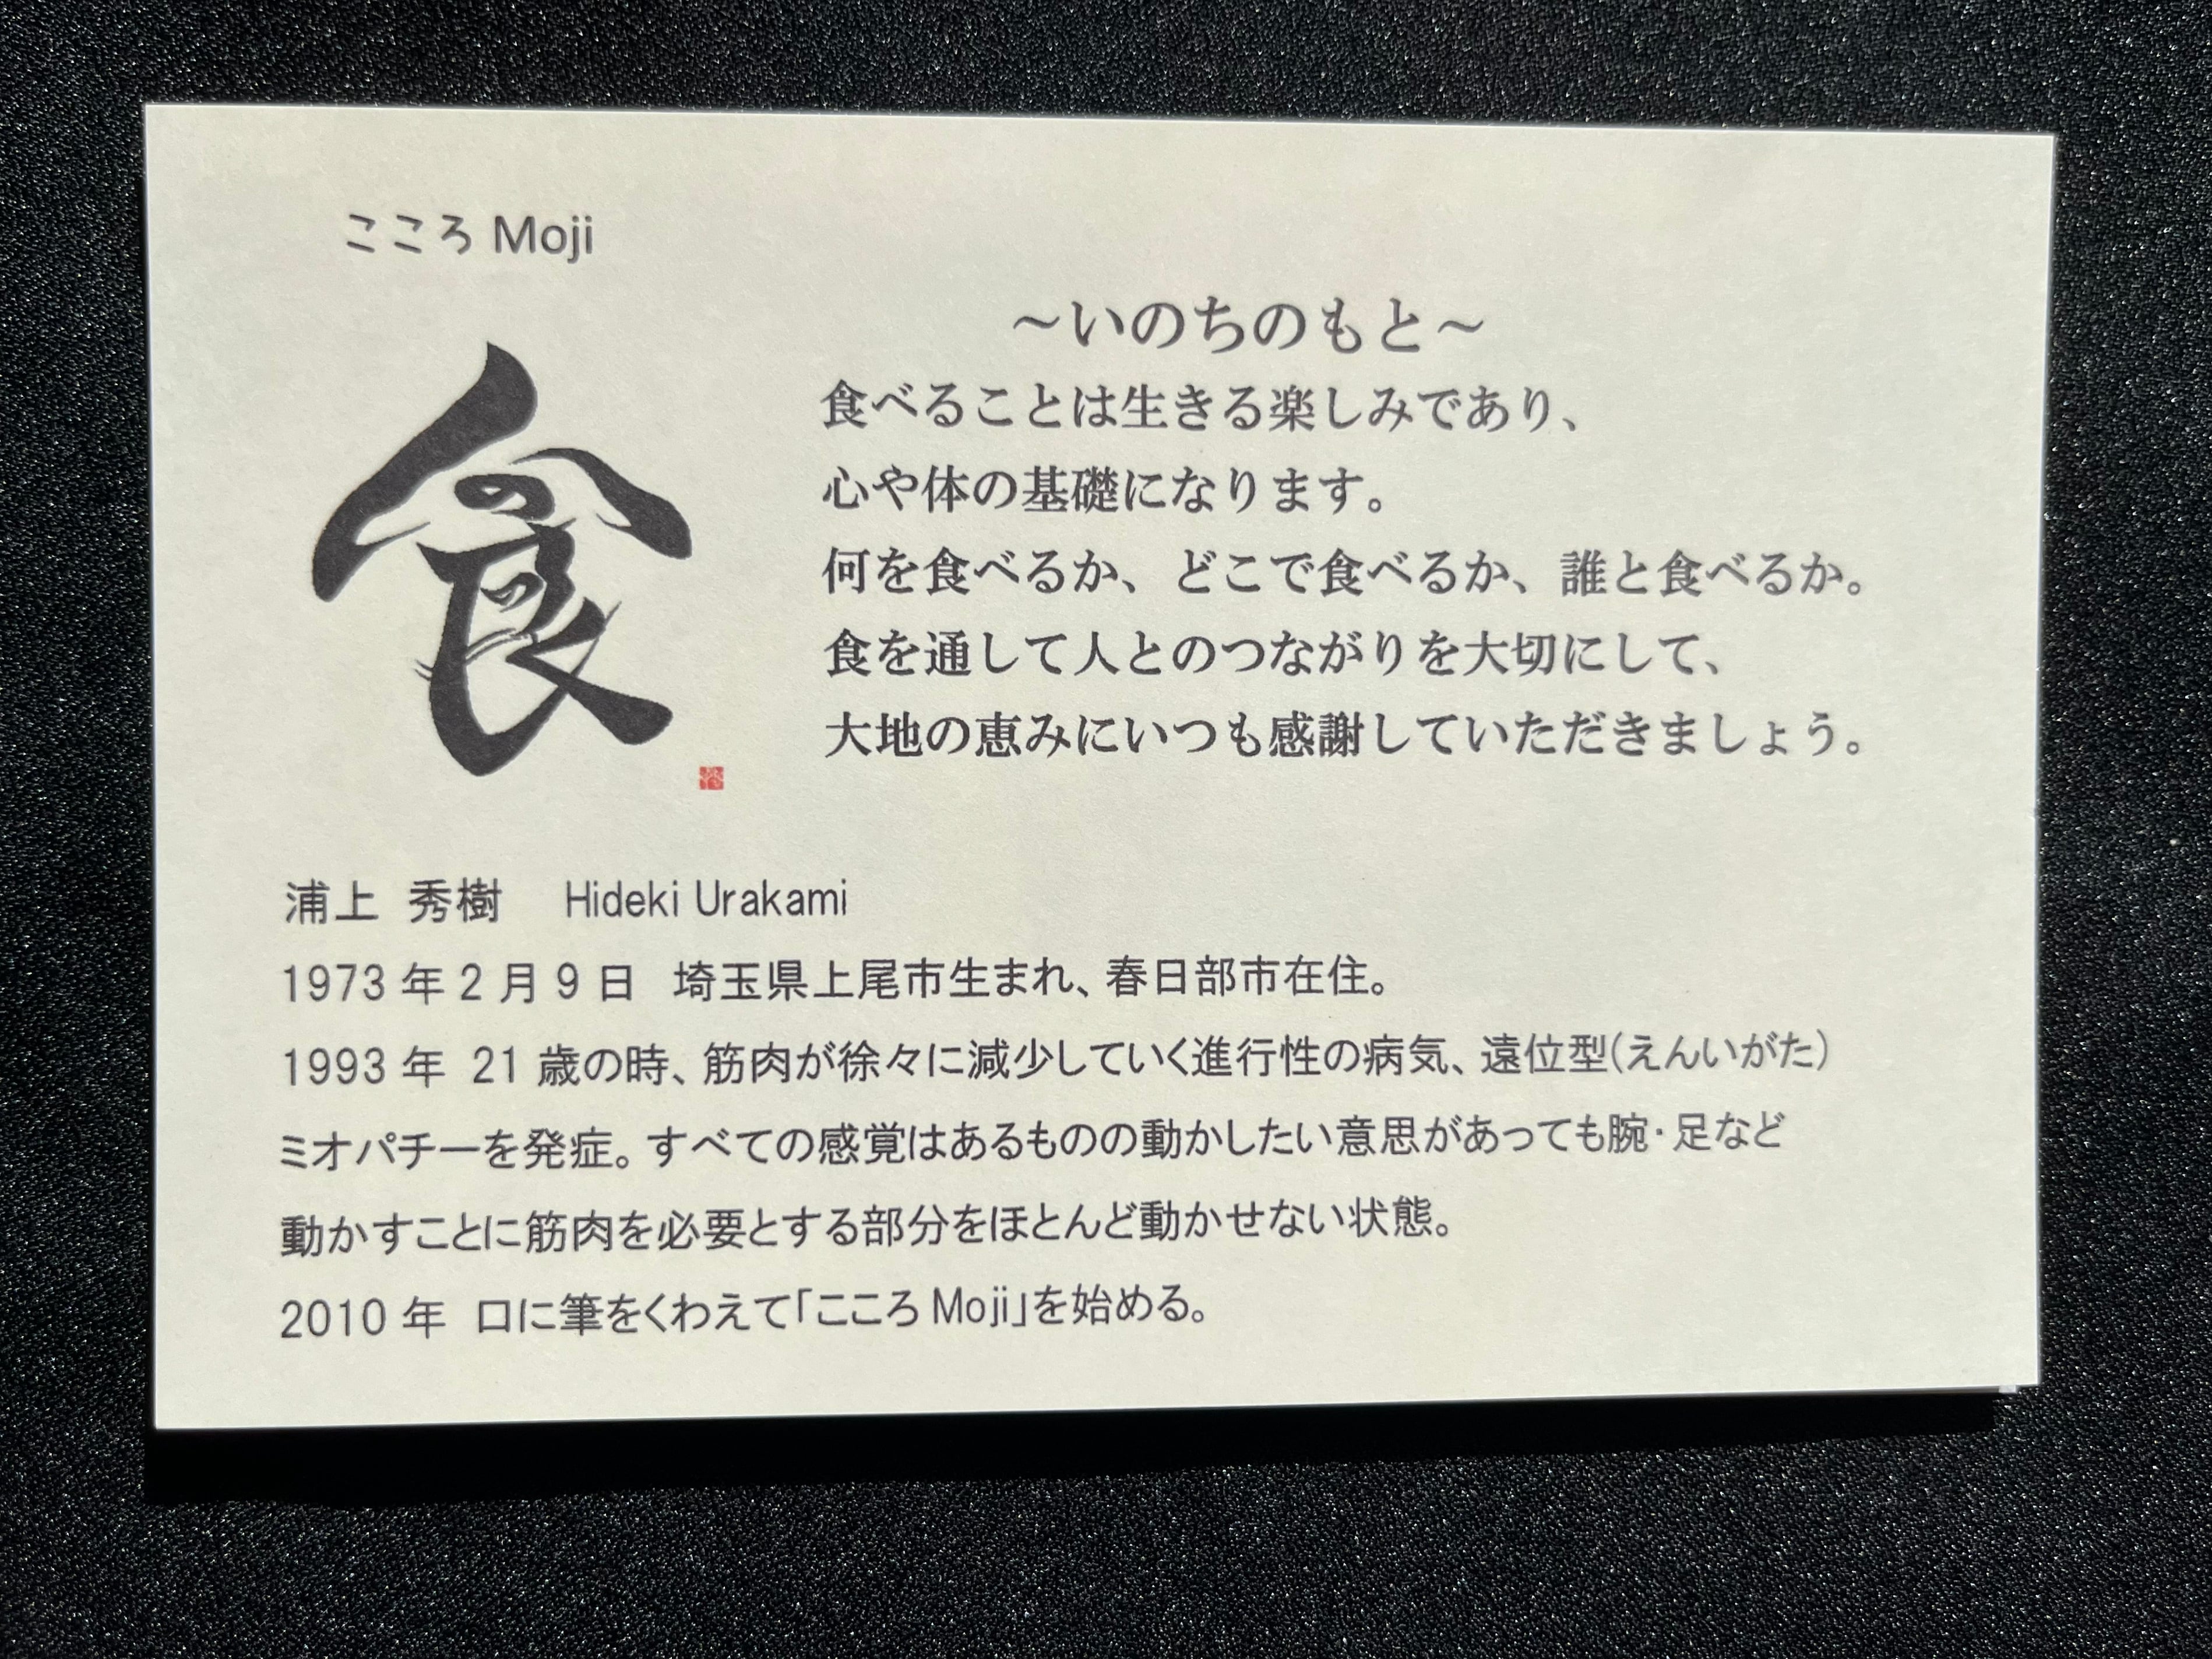 こころ Moji
食
～いのちのもと～
食べることは生きる楽しみであり、
心や体の基礎になります。
何を食べるか、どこで食べるか、誰と食べるか。
食を通して人とのつながりを大切にして、
大地の恵みにいつも感謝していただきましょう。
浦上 秀樹 Hideki Urakami
1973 年 2 月 9 日 埼玉県上尾市生まれ、春日部市在住。
1993 年 21 歳の時、筋肉が徐々に減少していく進行性の病気、遠位型(えんいがた)
ミオパチーを発症。すべての感覚はあるものの動かしたい意思があっても腕・足など
動かすことに筋肉を必要とする部分をほとんど動かせない状態。
2010 年 口に筆をくわえて「こころ Moji」を始める。